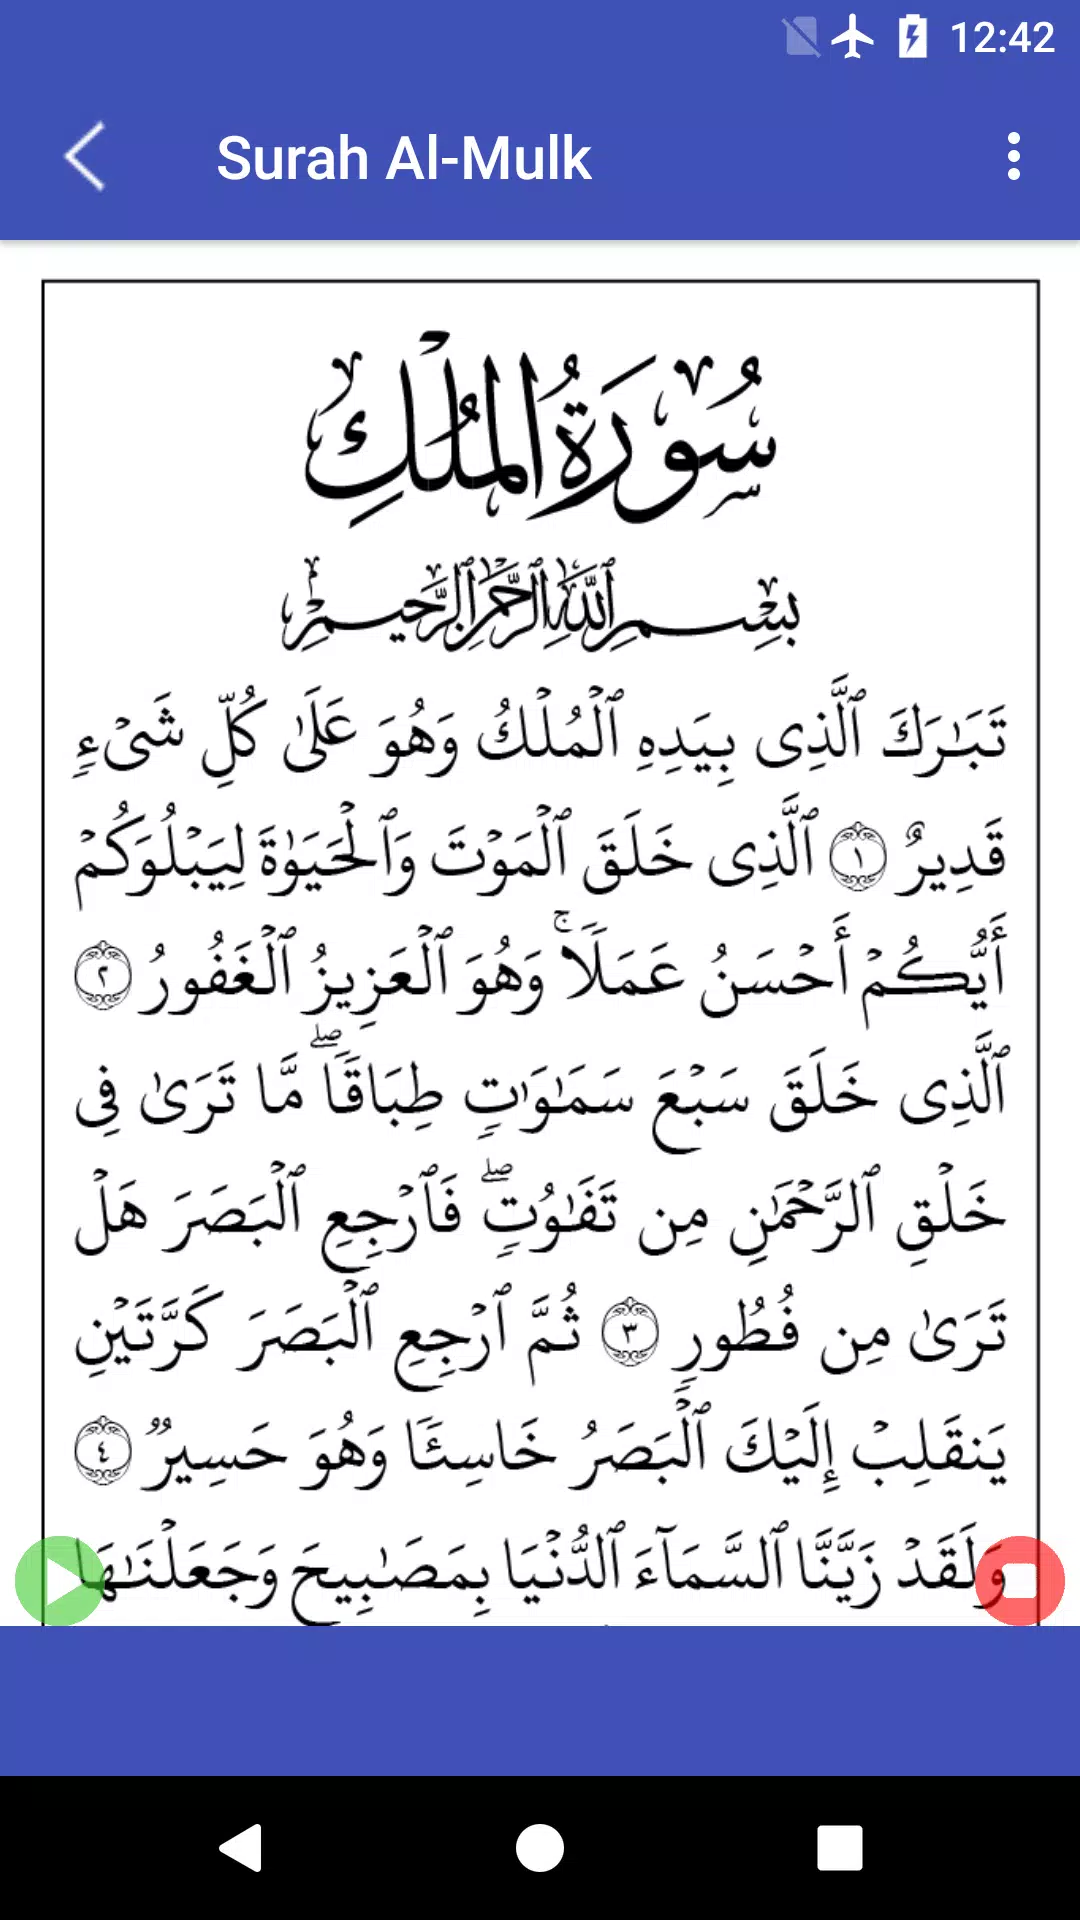 12:42
Surah Al-Mulk
سُورَةُ المُلْكِ
بِسْمِ ٱللَّهِ ٱلرَّحْمَٰنِ ٱلرَّحِيمِ
تَبَٰرَكَ ٱلَّذِى بِيَدِهِ ٱلْمُلْكُ وَهُوَ عَلَىٰ كُلِّ شَىْءٍ
قَدِيرٌ ١ ٱلَّذِى خَلَقَ ٱلْمَوْتَ وَٱلْحَيَوٰةَ لِيَبْلُوَكُمْ
أَيُّكُمْ أَحْسَنُ عَمَلًا ۚ وَهُوَ ٱلْعَزِيزُ ٱلْغَفُورُ ٢
ٱلَّذِى خَلَقَ سَبْعَ سَمَٰوَٰتٍ طِبَاقًا ۖ مَّا تَرَىٰ فِى
خَلْقِ ٱلرَّحْمَٰنِ مِن تَفَٰوُتٍ ۖ فَٱرْجِعِ ٱلْبَصَرَ هَلْ
تَرَىٰ مِن فُطُورٍ ٣ ثُمَّ ٱرْجِعِ ٱلْبَصَرَ كَرَّتَيْنِ
يَنقَلِبْ إِلَيْكَ ٱلْبَصَرُ خَاسِئًا وَهُوَ حَسِيرٌ ٤
وَلَقَدْ زَيَّنَّا ٱلسَّمَآءَ ٱلدُّنْيَا بِمَصَٰبِيحَ وَجَعَلْنَٰهَا